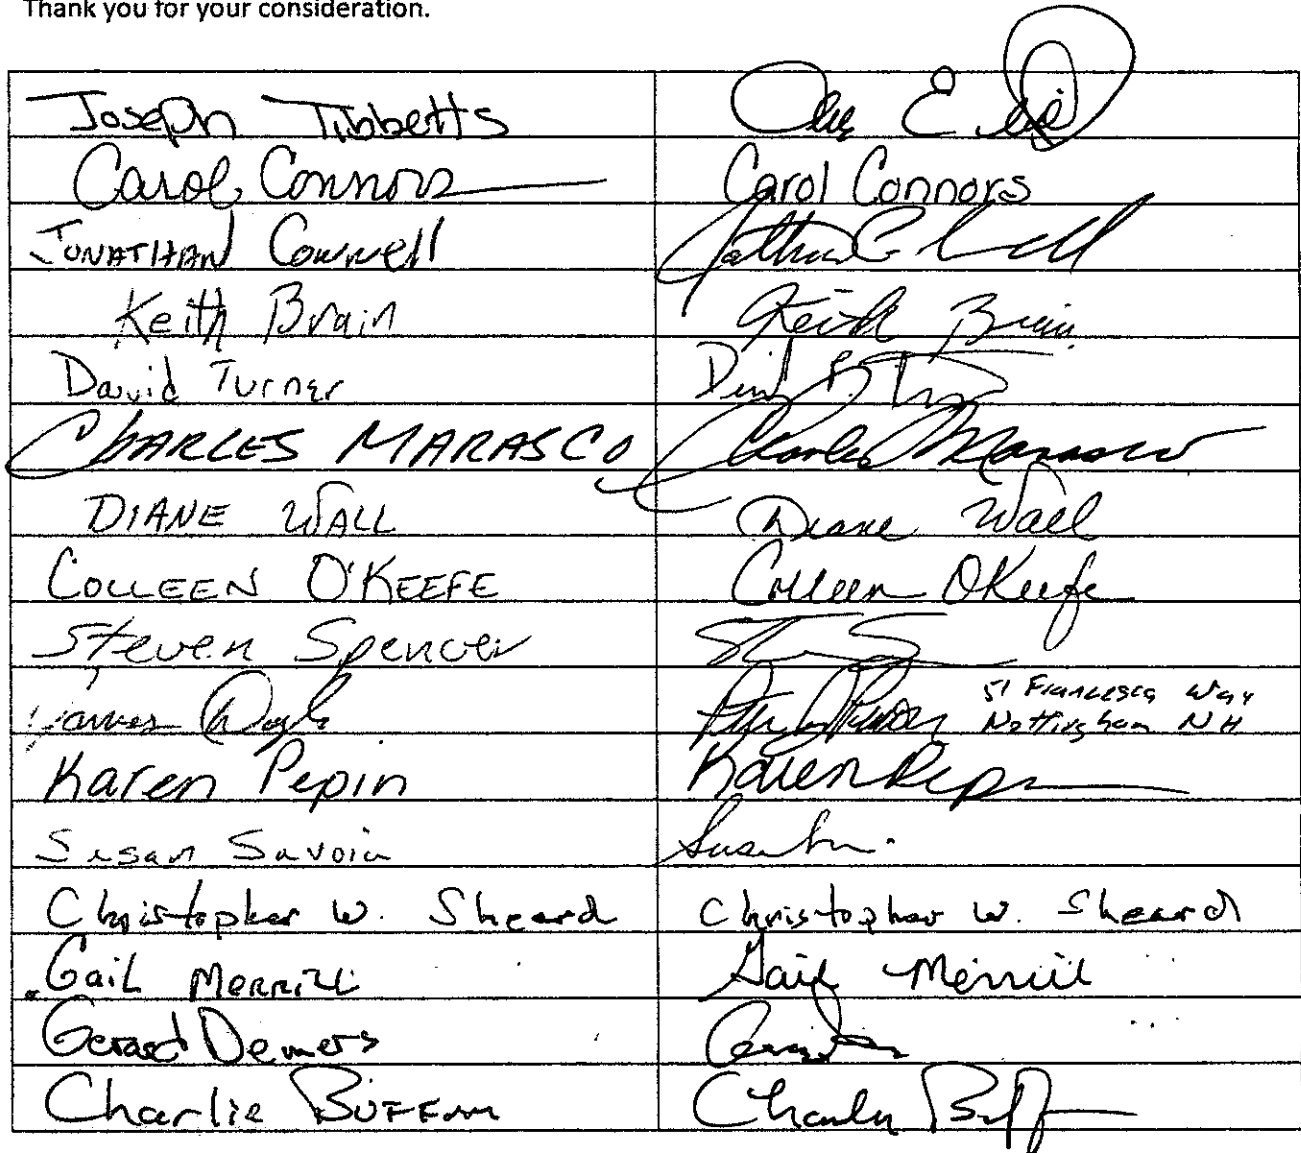 Thank you for your consideration.
Joseph Tibbetts
Carol Connors Carol Connors
JONATHAN Connell
Keith Brain Keith Brain
David Turner
CHARLES MARASCO Charles Marasco
DIANE WALL Diane Wall
COLLEEN O'KEEFE Colleen OKeefe
Steven Spencer
James Doyle 51 Francesca Way
Nottingham NH
Karen Pepin Karen Pepin
Susan Savoia Susan
Christopher W. Sheard Christopher W. Sheard
Gail Merrill Gail Merrill
Gerard Demers
Charlie Buffum